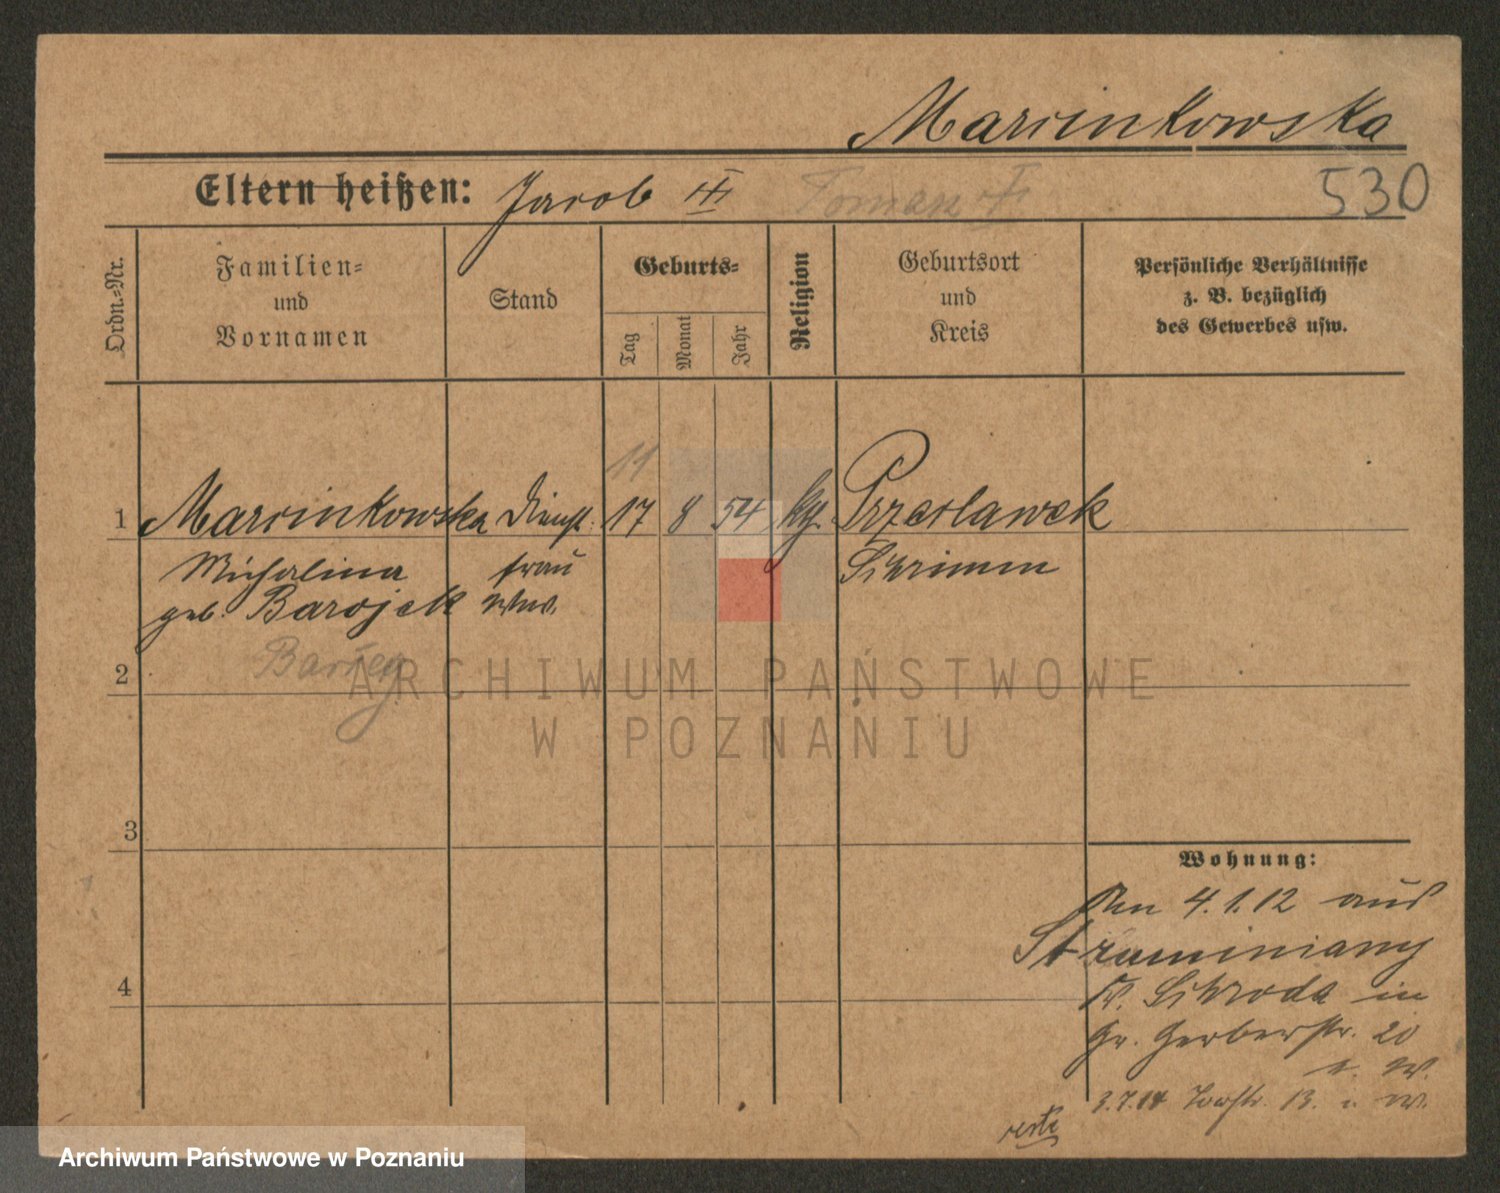 Marcinkowska
Eltern heißen: Jacob III Toman I
530
Ordn.-Nr.
Familien-
und
Vornamen
Stand
Geburts-
Tag
Monat
Jahr
Religion
Geburtsort
und
Kreis
Persönliche Verhältnisse
z. B. bezüglich
des Gewerbes usw.
11
1 Marcinkowska Dienst- 17 8 54 kg. Przeslawek
Michalina frau Schrimm
geb. Barojek Ww.
2
3
4
Wohnung:
Am 4.1.12 aus
Struminiany
Kr. Schroda in
Gr. Gerberstr. 20
i. W.
3.7.14 13. i. W.
ARCHIWUM PAŃSTWOWE
W POZNANIU
Archiwum Państwowe w Poznaniu